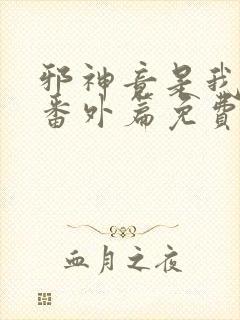 邪神竟是我
番外篇免費
血月之夜